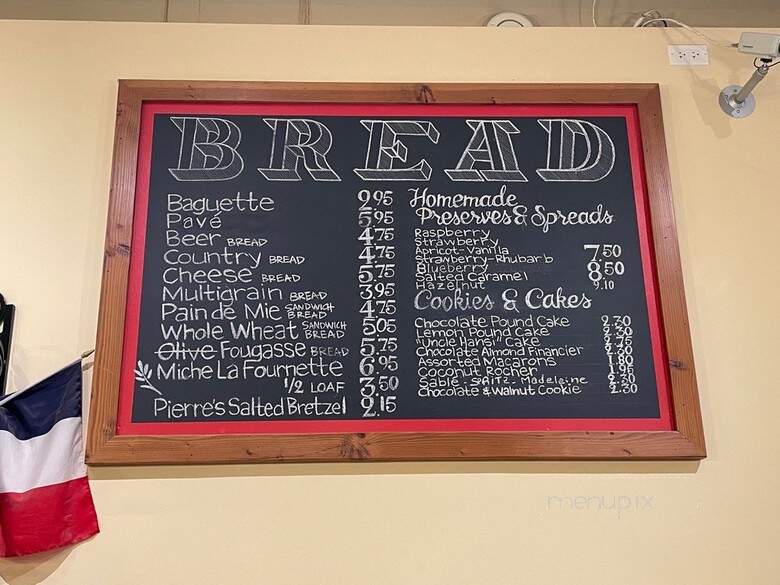 BREAD
Baguette 2.95
Pavé 5.95
Beer BREAD 4.75
Country BREAD 4.75
Cheese BREAD 5.75
Multigrain BREAD 3.95
Pain de Mie SANDWICH BREAD 4.75
Whole Wheat SANDWICH BREAD 5.05
Olive Fougasse BREAD 5.75
Miche La Fournette 6.95
1/2 LOAF 3.50
Pierre's Salted Bretzel 2.15
Homemade
Preserves & Spreads
Raspberry
Strawberry
Apricot-Vanilla
Strawberry-Rhubarb 7.50
Blueberry
Salted Caramel 8.50
Hazelnut 9.10
Cookies & Cakes
Chocolate Pound Cake 2.30
Lemon Pound Cake 2.30
"Uncle Hansi" Cake 2.75
Chocolate Almond Financier
Assorted Macarons 1.80
Coconut Rocher 1.95
Sablé - SPRITZ - Madeleine
Chocolate & Walnut Cookie 2.30
menupix